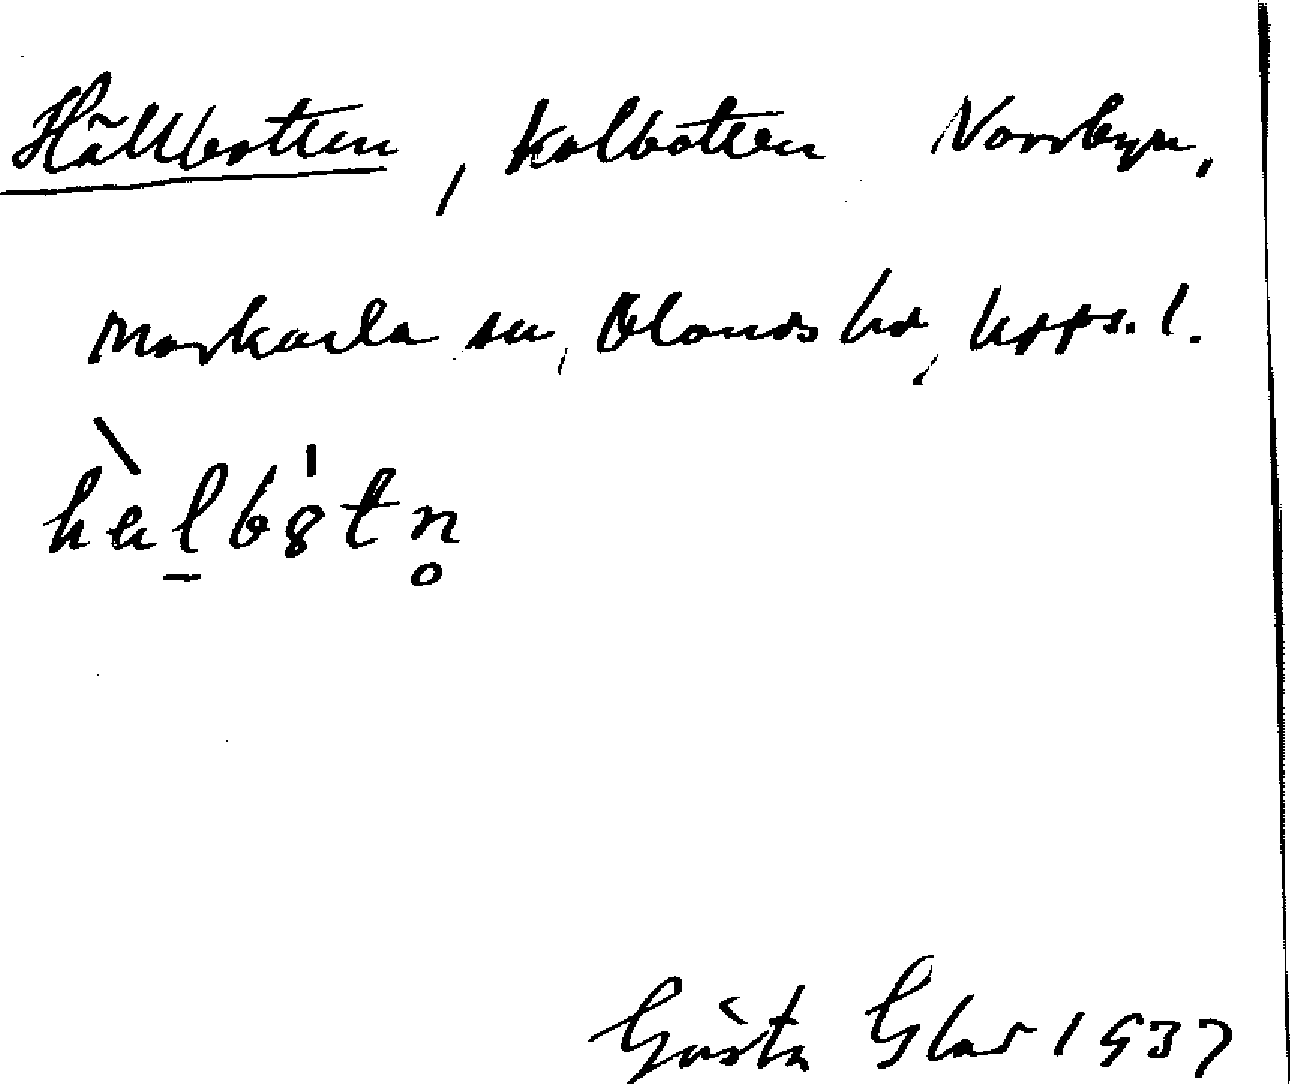 Hällbotten, kolbotten Norrbyn,
Morkarla sn, Olands hd, Upps. l.
hälbȯtn̥
Gösta Glad 1937